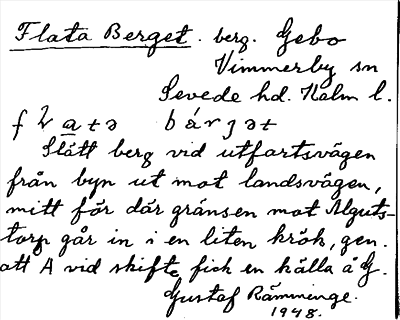 Flata Berget. berg. Gebo
Vimmerby sn
Sevede hd. Kalm l.
flatə bárjət
Slätt berg vid utfartsvägen
från byn ut mot landsvägen,
mitt för där gränsen mot Alguts-
torp går in i en liten krök, gen.
att A vid skifte fick en källa å G.
Gustaf Rämminge.
1948.